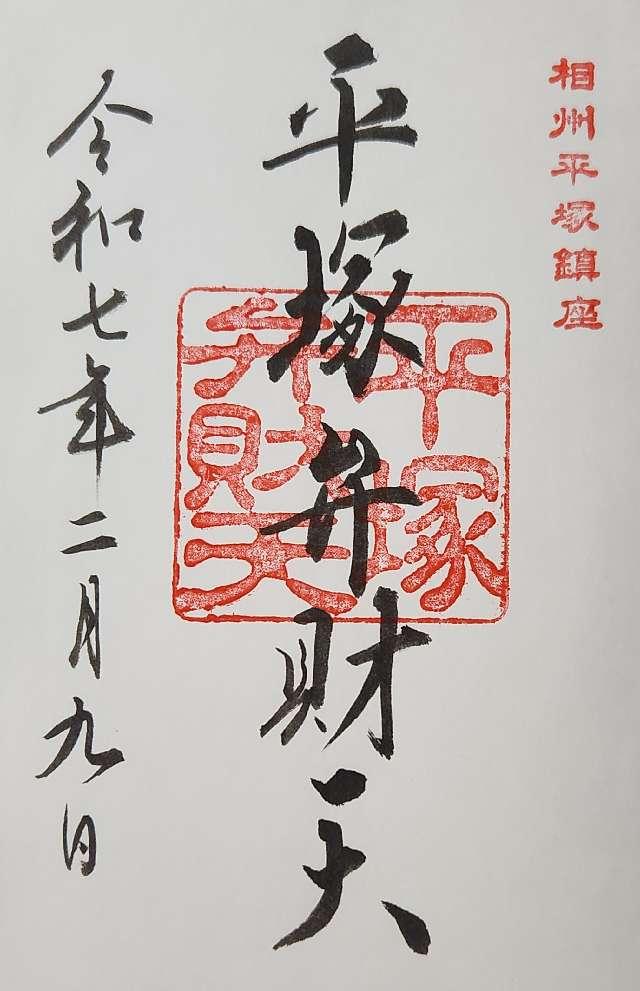 相州平塚鎮座
平塚弁財天
平塚
弁財天
令和七年二月九日